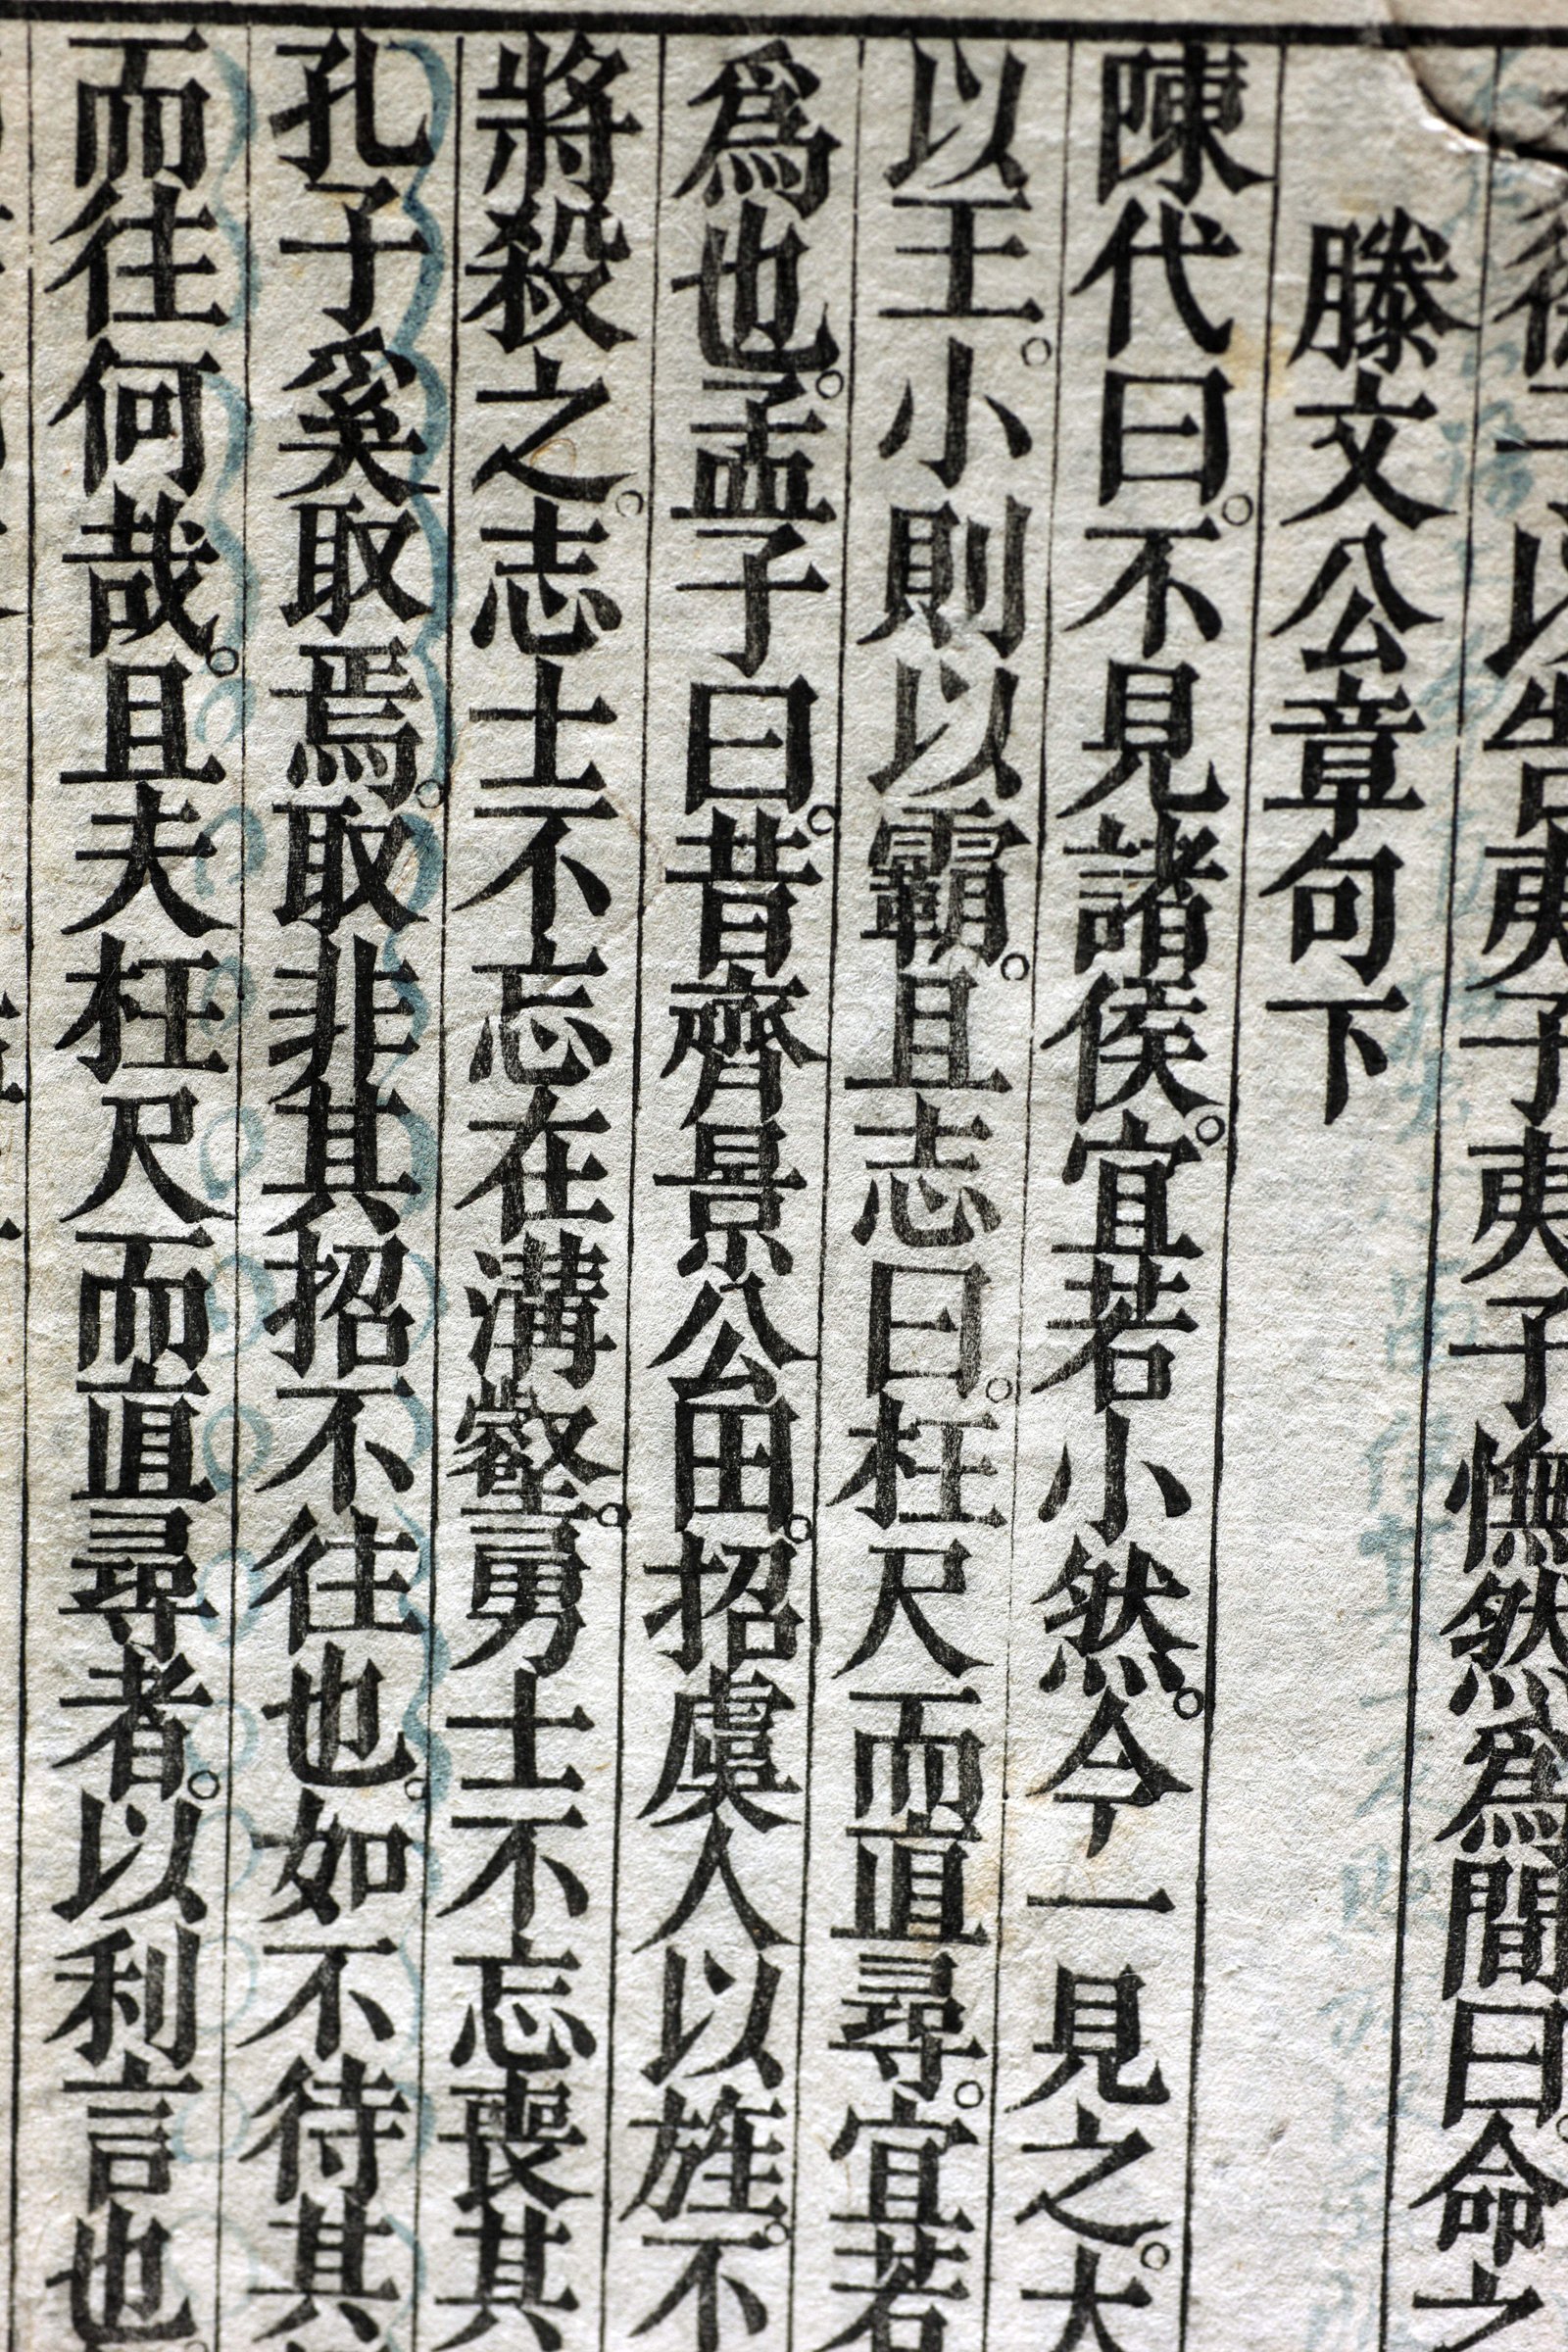 徐子以告夷子夷子憮然爲間曰命之
滕文公章句下
陳代曰。不見諸侯。宜若小然。今一見之。大
以王。小則以霸。且志曰。枉尺而直尋。宜若
爲也。孟子曰。昔齊景公田。招虞人以旌。不
將殺之。志士不忘在溝壑。勇士不忘喪其
孔子奚取焉。取非其招不往也。如不待其
而往何哉。且夫枉尺而直尋者。以利言也